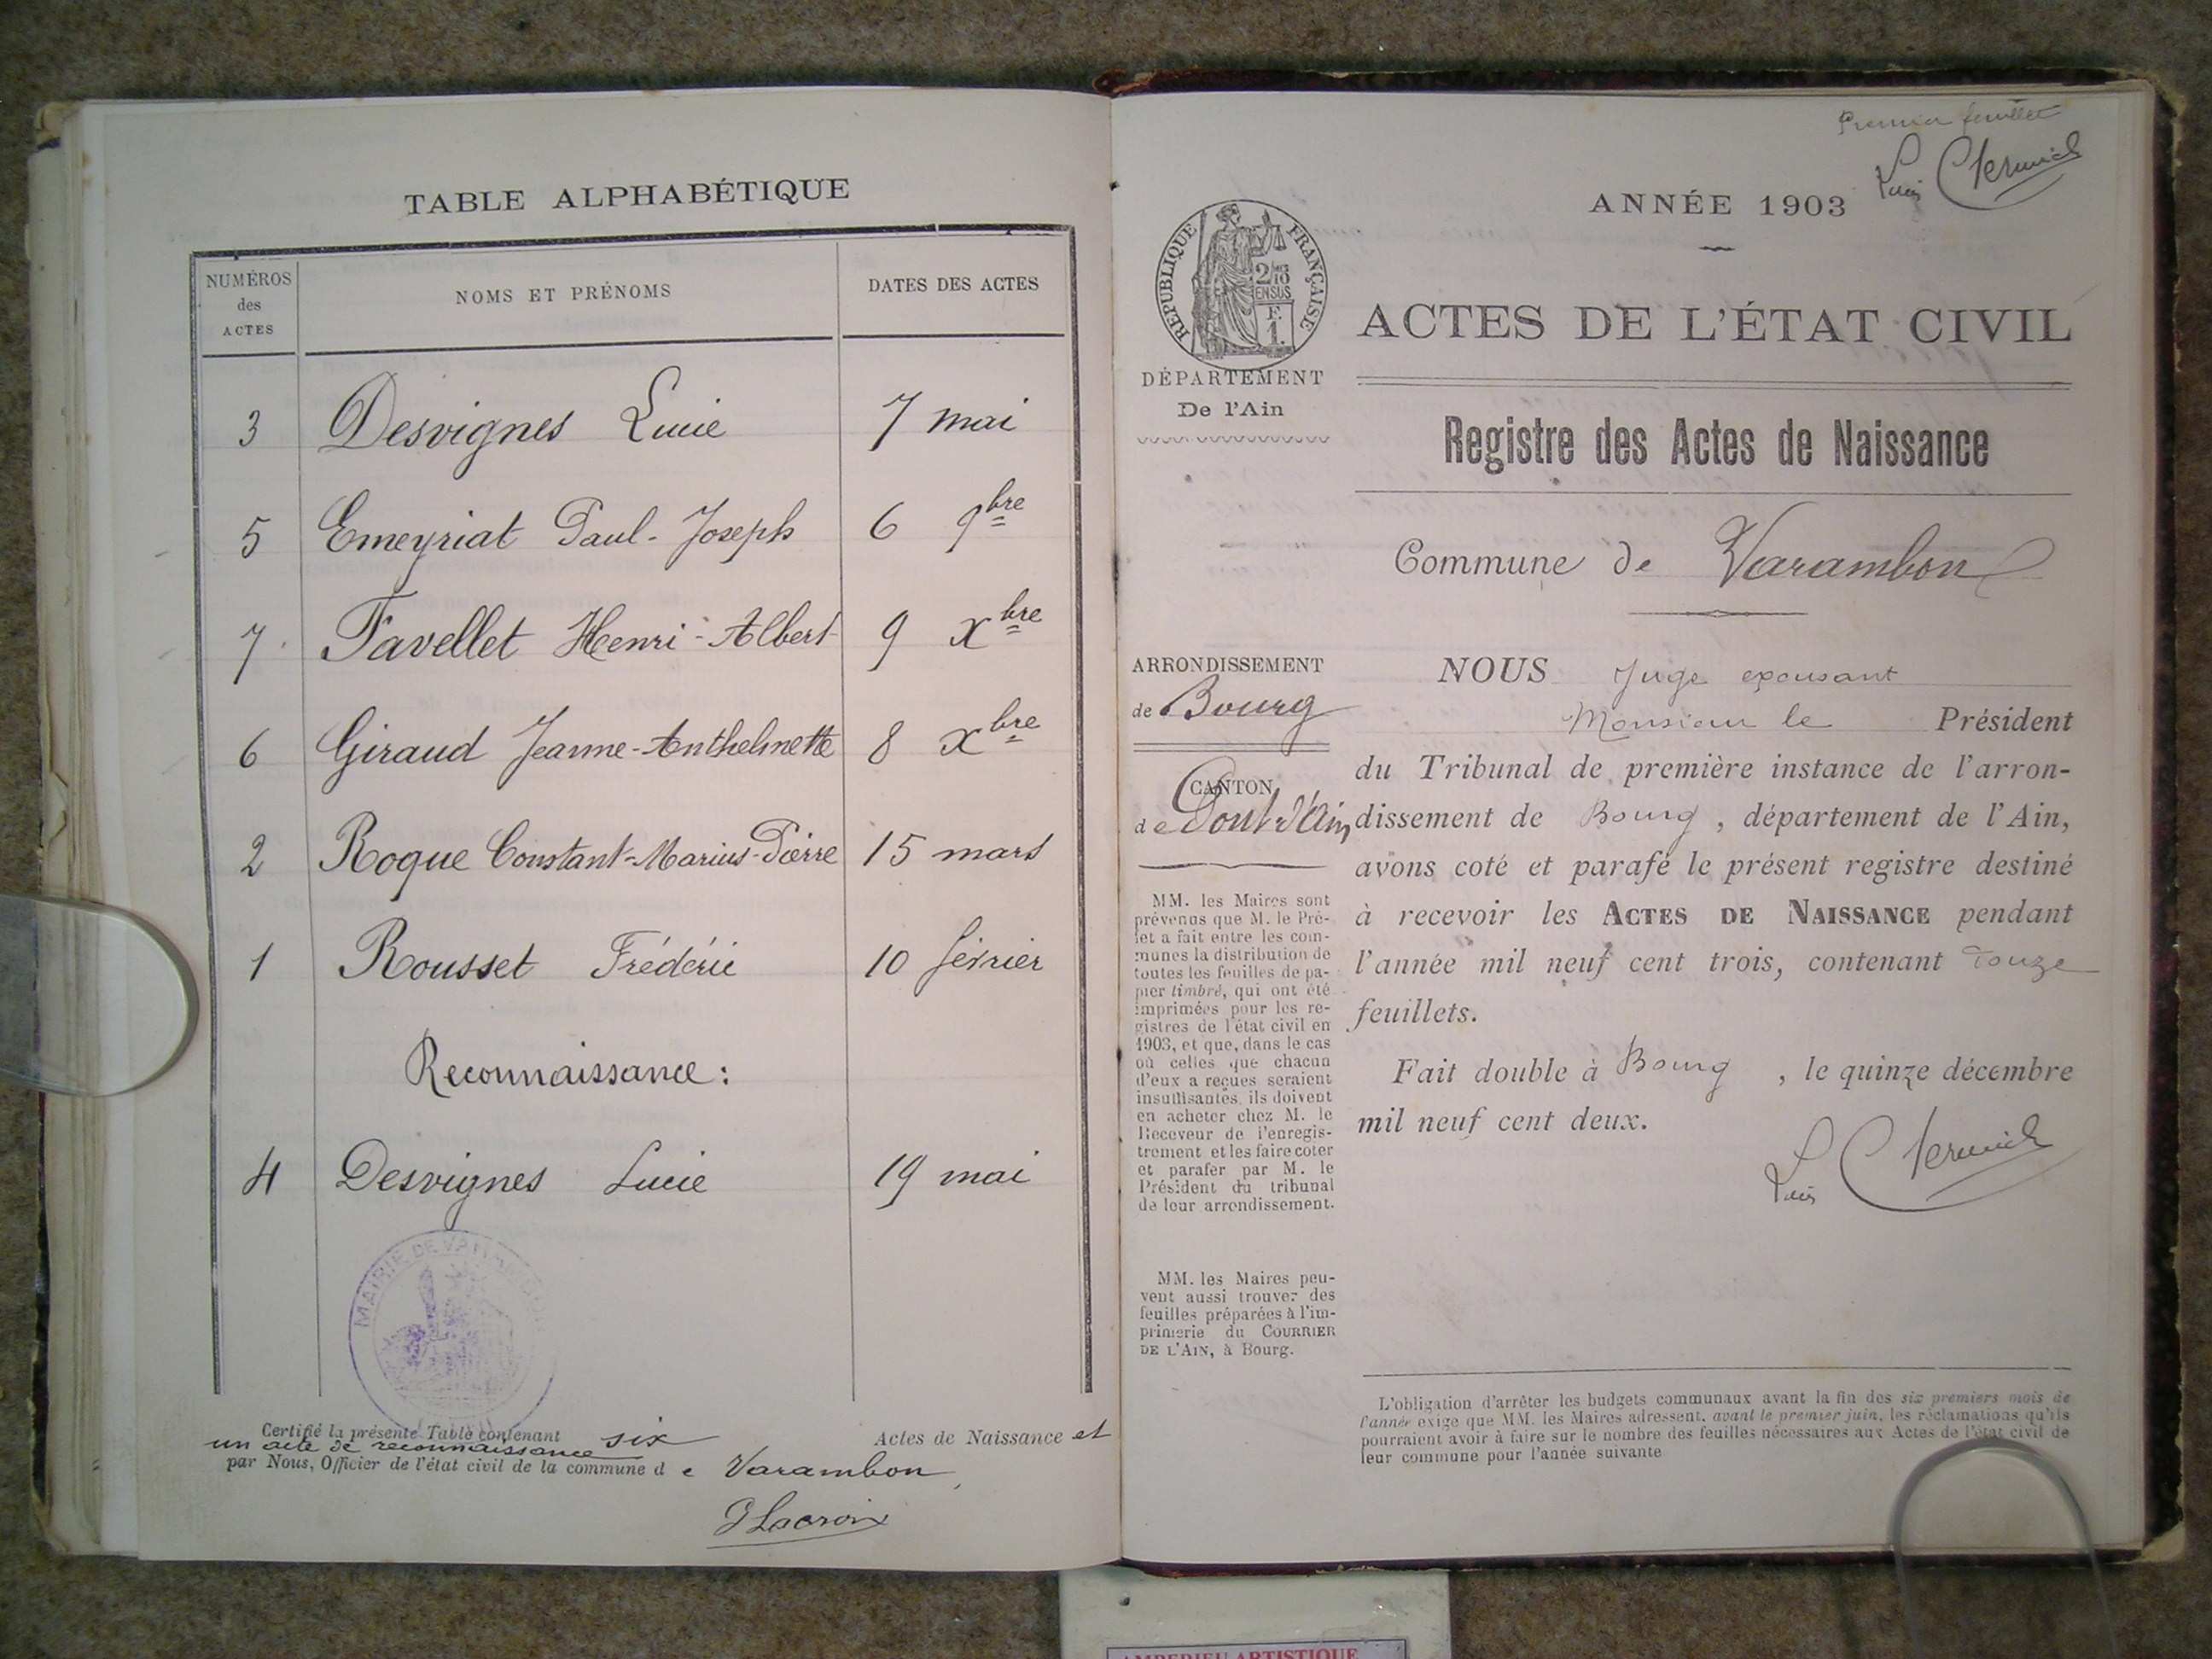 TABLE ALPHABÉTIQUE
NUMÉROS des ACTES
NOMS ET PRÉNOMS
DATES DES ACTES
3 Desvignes Lucie 7 mai
5 Emeyriat Paul-Joseph 6 9bre
7 Favellet Henri-Albert 9 Xbre
6 Giraud Jeanne-Anthelmette 8 Xbre
2 Roque Constant-Marius-Pierre 15 mars
1 Rousset Frédéric 10 février
Reconnaissance :
4 Desvignes Lucie 19 mai
MAIRIE DE
Certifié la présente Table contenant six Actes de Naissance et
un acte de reconnaissance
par Nous, Officier de l'état civil de la commune de Varambon
Lacroix
Premier feuillet
Louis
ANNÉE 1903
RÉPUBLIQUE FRANÇAISE
2/10
EN SUS
F.
1.
ACTES DE L'ÉTAT CIVIL
DÉPARTEMENT
De l'Ain
Registre des Actes de Naissance
Commune de Varambon
ARRONDISSEMENT
de Bourg
CANTON
de Pont d'Ain
MM. les Maires sont
prévenus que M. le Pré-
fet a fait entre les com-
munes la distribution de
toutes les feuilles de pa-
pier timbré, qui ont été
imprimées pour les re-
gistres de l'état civil en
1903, et que, dans le cas
où celles que chacun
d'eux a reçues seraient
insuffisantes, ils doivent
en acheter chez M. le
Receveur de l'enregis-
trement et les faire coter
et parafer par M. le
Président du tribunal
de leur arrondissement.
MM. les Maires peu-
vent aussi trouver des
feuilles préparées à l'im-
primerie du COURRIER
DE L'AIN, à Bourg.
NOUS Juge exousant
Monsieur le Président
du Tribunal de première instance de l'arron-
dissement de Bourg, département de l'Ain,
avons coté et parafé le présent registre destiné
à recevoir les ACTES DE NAISSANCE pendant
l'année mil neuf cent trois, contenant Douze
feuillets.
Fait double à Bourg, le quinze décembre
mil neuf cent deux.
Louis
L'obligation d'arrêter les budgets communaux avant la fin des six premiers mois de
l'année exige que MM. les Maires adressent, avant le premier juin, les réclamations qu'ils
pourraient avoir à faire sur le nombre des feuilles nécessaires aux Actes de l'état civil de
leur commune pour l'année suivante
AMBERIEU ARTISTIQUE